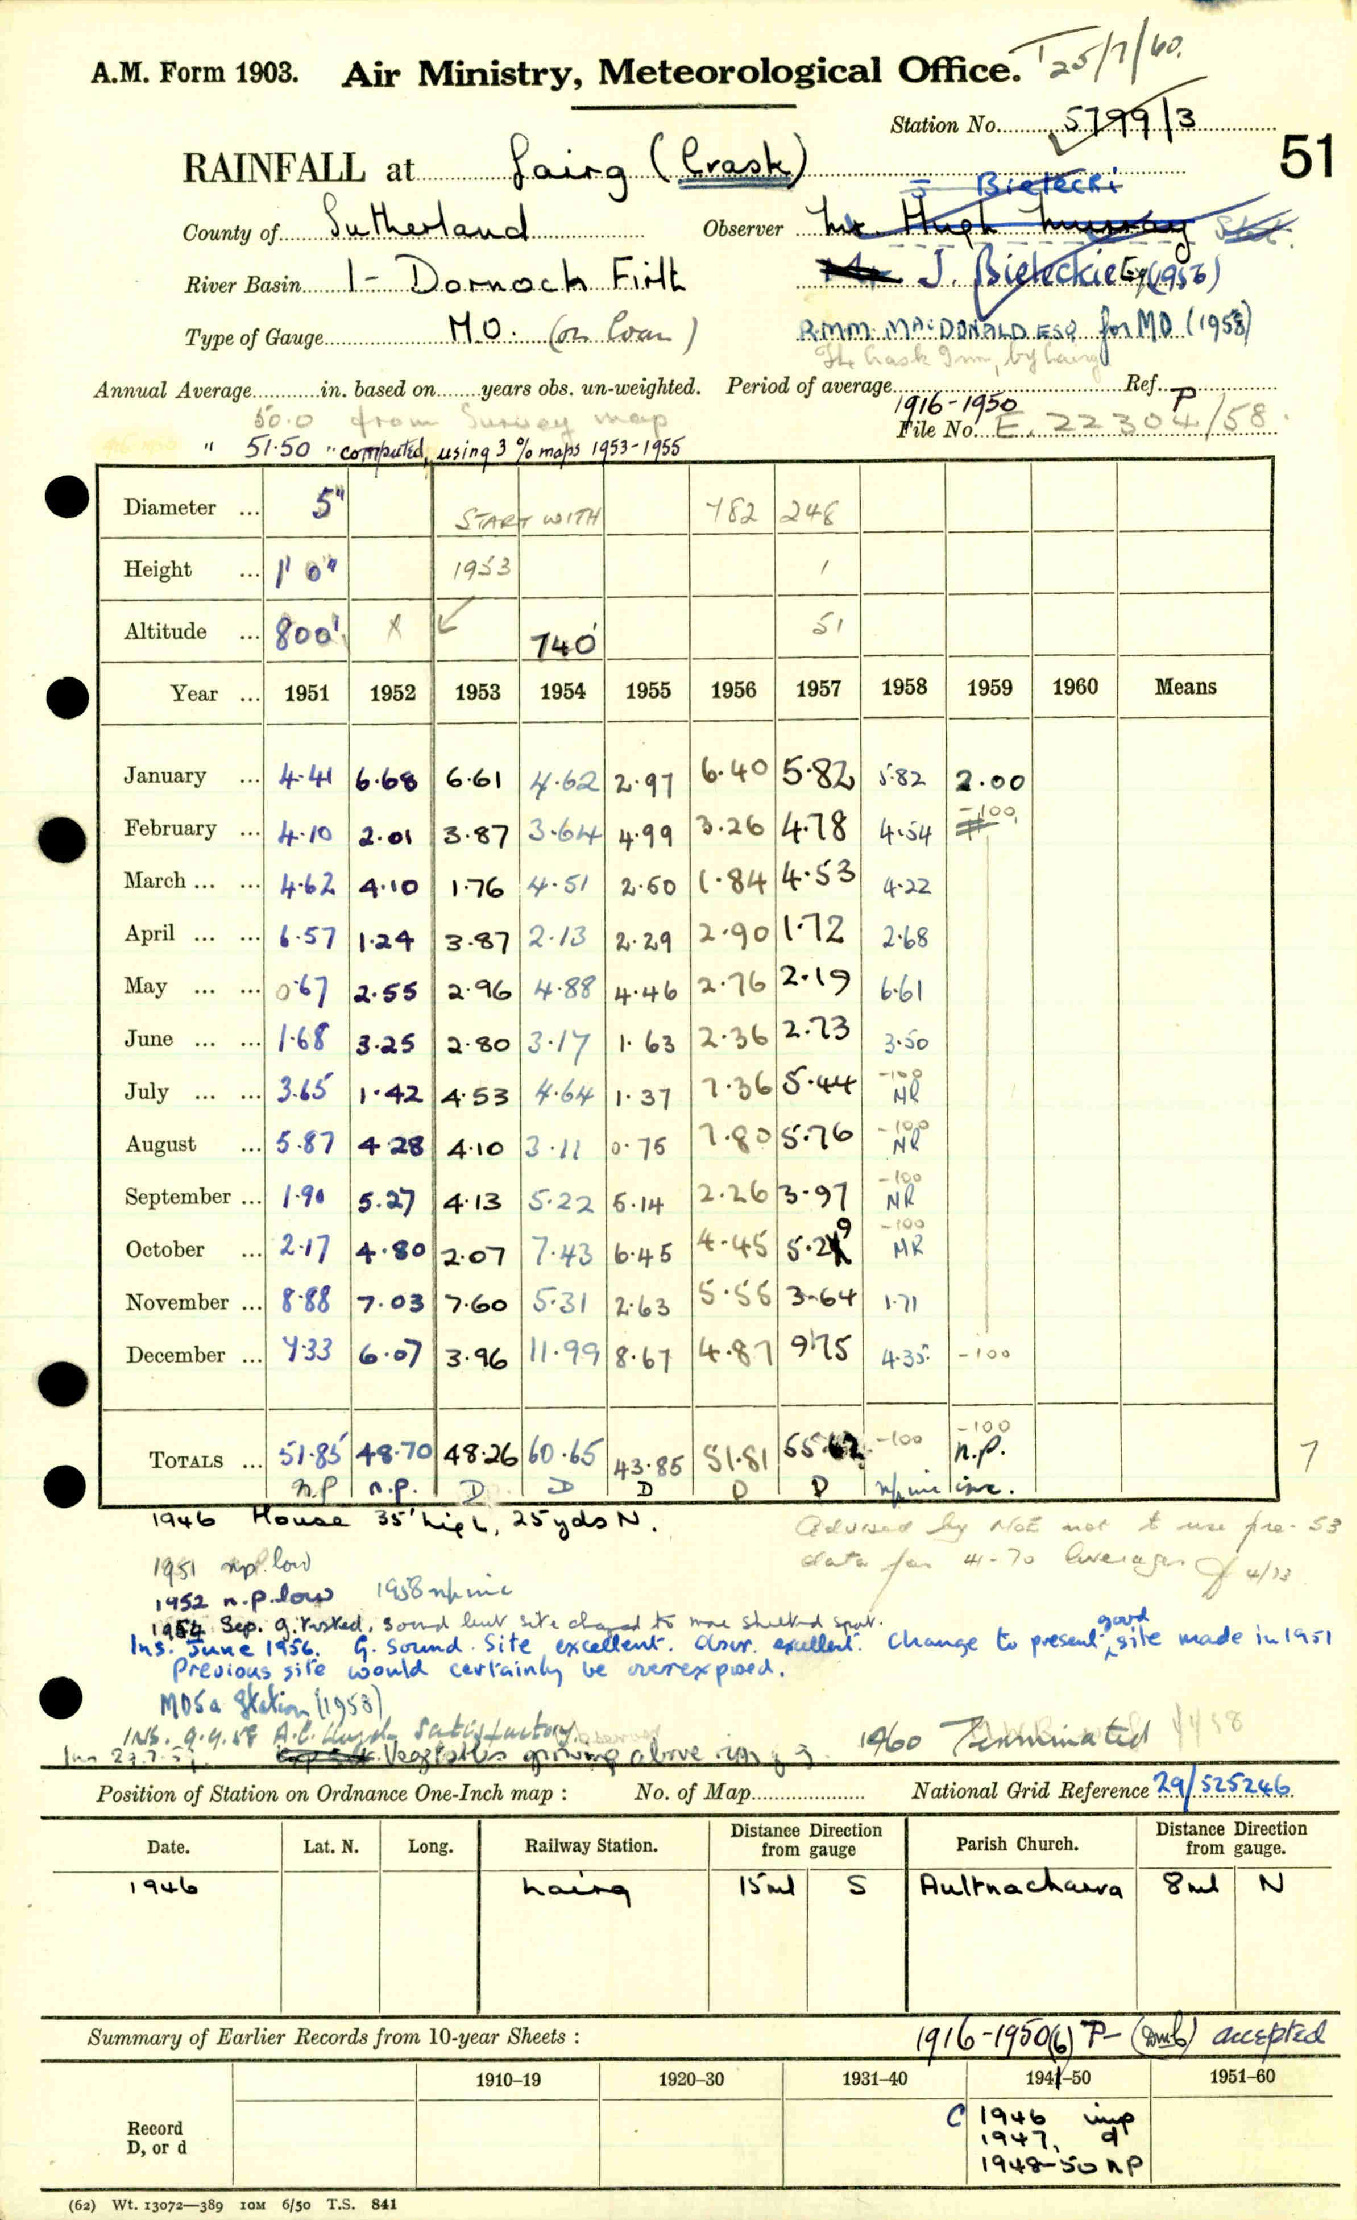 T 25/7/60.
A.M. Form 1903. Air Ministry, Meteorological Office.
Station No. 5799/3
51
RAINFALL at Lairg (Crask)
J Bielecki
County of Sutherland Observer Mr. Hugh Murray
River Basin 1 - Dornoch Firth J. Bieleckie Esq (1956)
Type of Gauge M.O. (on loan) R.M.M. MACDONALD ESQ for MO (1958)
The Crask Inn, by Lairg
Annual Average in. based on years obs. un-weighted. Period of average 1916-1950 Ref. P
50.0 from Survey map File No. E. 22304/58.
" 51.50 " computed, using 3 % maps 1953-1955
Diameter ... 5" START WITH 782 248
Height ... 1' 0" 1953 1
Altitude ... 800' X 740' 51
Year ... 1951 1952 1953 1954 1955 1956 1957 1958 1959 1960 Means
January ... 4.41 6.68 6.61 4.62 2.97 6.40 5.82 5.82 2.00
February ... 4.10 2.01 3.87 3.64 4.99 3.26 4.78 4.54 -100
March ... ... 4.62 4.10 1.76 4.51 2.50 1.84 4.53 4.22
April ... ... 6.57 1.24 3.87 2.13 2.29 2.90 1.72 2.68
May ... ... 0.67 2.55 2.96 4.88 4.46 2.76 2.19 6.61
June ... ... 1.68 3.25 2.80 3.17 1.63 2.36 2.73 3.50
July ... ... 3.65 1.42 4.53 4.64 1.37 7.36 5.44 -100 NR
August ... 5.87 4.28 4.10 3.11 0.75 7.80 5.76 -100 NR
September ... 1.90 5.27 4.13 5.22 6.14 2.26 3.97 -100 NR
October ... 2.17 4.80 2.07 7.43 6.45 4.45 5.29 -100 NR
November ... 8.88 7.03 7.60 5.31 2.63 5.55 3.64 1.71
December ... 7.33 6.07 3.96 11.99 8.67 4.87 9.75 4.35 -100
TOTALS ... 51.85 48.70 48.26 60.65 43.85 51.81 55.62 -100 -100 n.p.
n.p n.p. D D D D D inc.
7
1946 House 35' high, 25yds N.
Advised by NoE not to use pre-53
data for 41-70 Averages 4/73
1951 n.p. low
1952 n.p. low 1958 np inc
1954 Sep. g. rusted, sound but site changed to more sheltered spot.
Ins. June 1956. G. sound. Site excellent. Obsr. excellent. Change to present good site made in 1951
Previous site would certainly be overexposed.
MO5a Station (1958)
INS. 9.9.58 Satisfactory 1960 Terminated
Vegetables growing above rim of g.
Position of Station on Ordnance One-Inch map : No. of Map National Grid Reference 29/525246
Date. Lat. N. Long. Railway Station. Distance Direction from gauge Parish Church. Distance Direction from gauge.
1946 Lairg 15ml S Aultnacharra 8ml N
Summary of Earlier Records from 10-year Sheets : 1916-1950(6) P- (DMB) accepted
1910–19 1920–30 1931–40 1941–50 1951–60
Record
D, or d
C 1946 imp
1947, d
1948-50 n P
(62) Wt. 13072—389 10M 6/50 T.S. 841